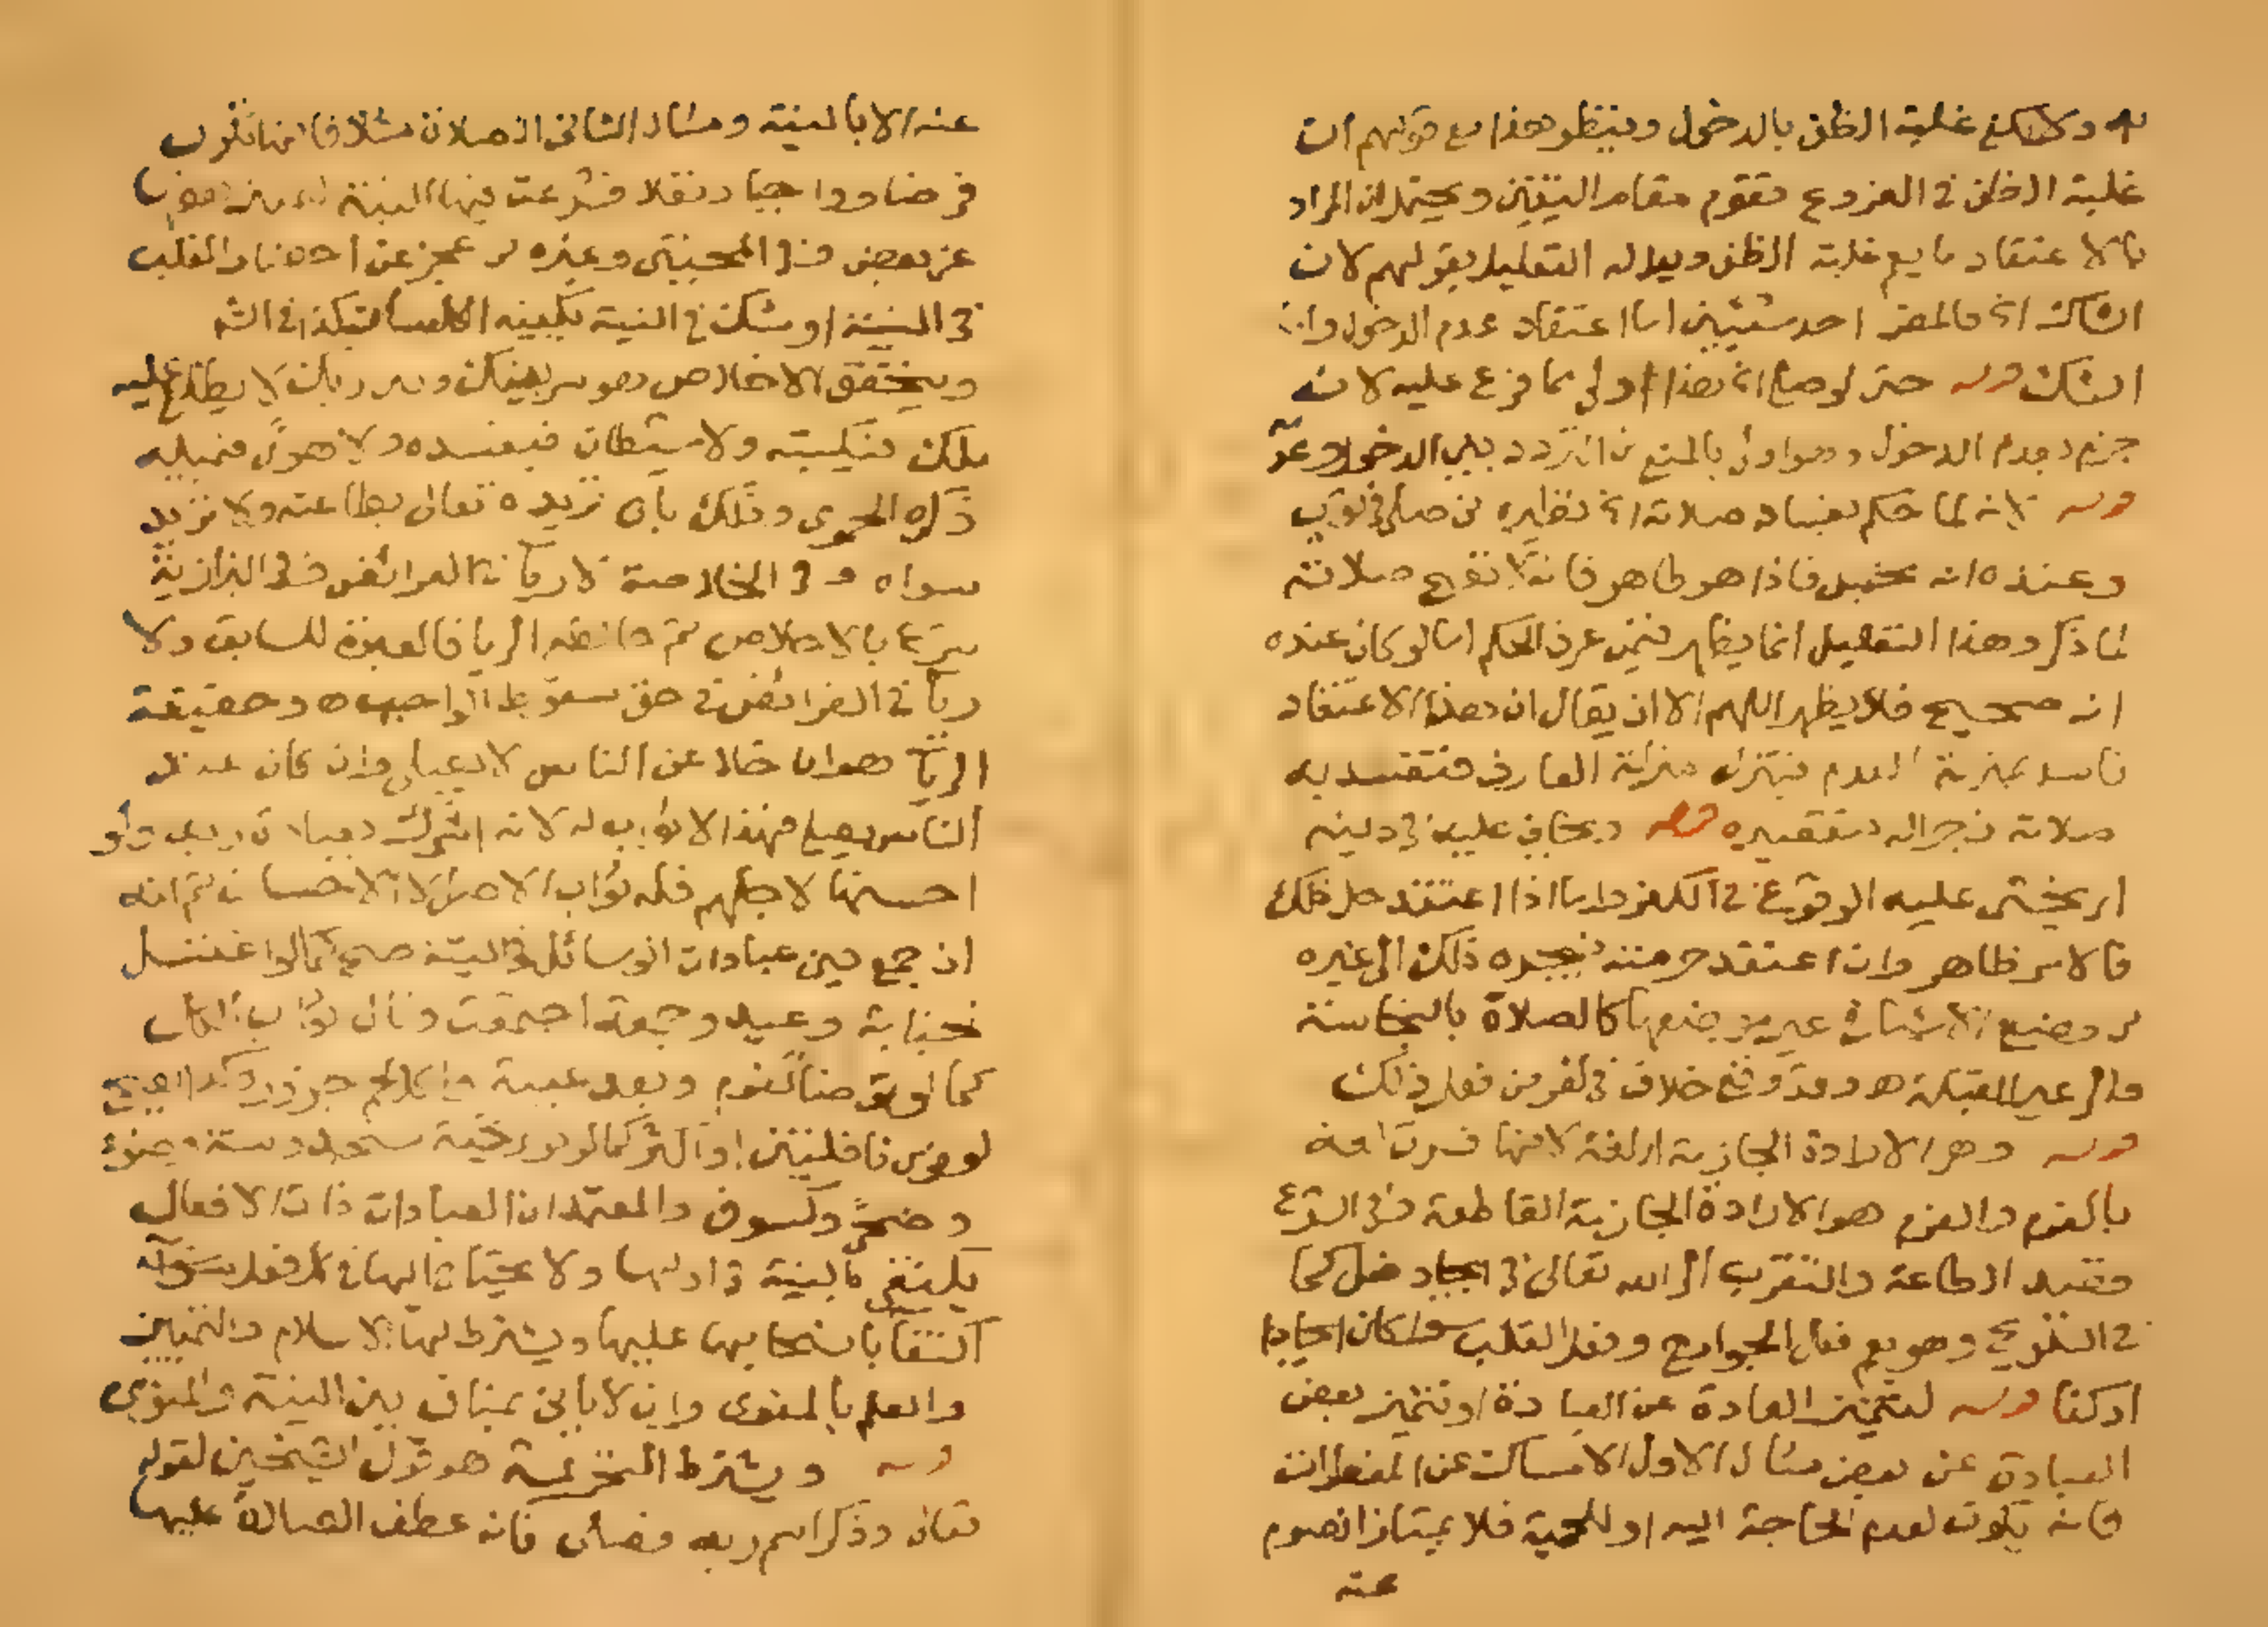 به ولا يكفي غلبة الظن بالدخول وينظر هذا مع قولهم ان
غلبة الظن في الفروع تقوم مقام اليقين ويحتمل ان المراد
بالاعتقاد ما يعم غلبة الظن ويدل له التعليل بقولهم لان
الشاك الخ فالمضر احد شيئين اما اعتقاد عدم الدخول واما
الشك قوله حتى لو صلى الخ هذا اولى مما فرع عليه لانه
جزم بعدم الدخول وهو اولى بالمنع من التردد بين الدخول وعدمه
قوله لانه لما حكم بفساد صلاته الخ نظيره من صلى في ثوب
وعنده انه نجس فاذا هو طاهر فانه لا تصح صلاته
لما ذكر وهذا التعليل انما يظهر فيمن عرف الحكم اما لو كان عنده
انه صحيح فلا يظهر اللهم الا ان يقال ان هذا الاعتقاد
فاسد بمنزلة العدم فينزل منزلة العارف فتفسد به
صلاته زجرا له بتقصيره قوله ويخاف عليه في دينه
اي يخشى عليه الوقوع في الكفر واما اذا اعتقد حل ذلك
فالامر ظاهر وان اعتقد حرمته فيجره ذلك الى غيره
من وضع الاشيا في غير موضعها كالصلاة بالنجاسة
والى غير القبلة هـ وقد وقع خلاف في كفر من فعل ذلك
قوله وهي الارادة الجازمة اي لغة لانها فسرت لغة
بالعزم والعزم هو الارادة الجازمة القاطعة وفي الشرع
قصد الطاعة والتقرب الى الله تعالى في ايجاد فعل كما
في التلويح وهو يعم فعل الجوارح وفعل القلب سوا كان ايجادا
او كفا قوله لتتميز العادة عن العبادة او تتميز بعض
العبادة عن بعض مثال الاول الامساك عن المفطرات
فانه يكون لعدم الحاجة اليه او للحمية فلا يمتاز الصوم
عنه
عنه الا بالنية ومثال الثاني الصلاة مثلا فانها تكون
فرضا وواجبا ونفلا فشرعت فيها النية بعضها
عن بعض وفي المجتبى وغيره من عجز عن احضار القلب
في النية او شك في النية يكفيه اللسان
ويتحقق الاخلاص وهو سر بينك وبين ربك لا يطلع عليه
ملك فيكتبه ولا شيطان فيفسده ولا هوى فيميله
ذكره الحموي وذلك بان تريده تعالى بطاعته ولا تريد
سواه وفي الخلاصة لا ريا في الفرائض وفي البزازية
شرع بالاخلاص ثم خالطه الريا فالعبرة للسابق ولا
ريا في الفرائض في حق سقوط الواجب هـ وحقيقة
الريا هو ان خلا عن الناس لا يصلي وان كان عند
الناس يصلي فهذا لا ثواب له لانه اشرك بعبادة ربه ولو
احسنها لاجلهم فله ثواب الاصل لا الاحسان ثم انه
ان جمع بين عبادات الوسائل في النية صح كما لو اغتسل
لجنابة وعيد وجمعة اجتمعت ونال ثواب الكل
كما لو توضا لنوم وبعد غيبة واكل لحم جزور وكذا يصح
لو نوى نافلتين او اكثر كما لو نوى تحية مسجد وسنة وضوء
وضحى وكسوف والمعتمد ان العبادات ذات الافعال
يكتفى بالنية في اولها ولا يحتاج اليها في كل فعل سواه
اكتفا بانسحابها عليها ويشترط لها الاسلام والتمييز
والعلم بالمنوي وان لا ياتي بمناف بين النية والمنوي
قوله ويشترط التحريمة هو قول الشيخين لقوله
تعالى وذكر اسم ربه فصلى فانه عطف الصلاة عليها